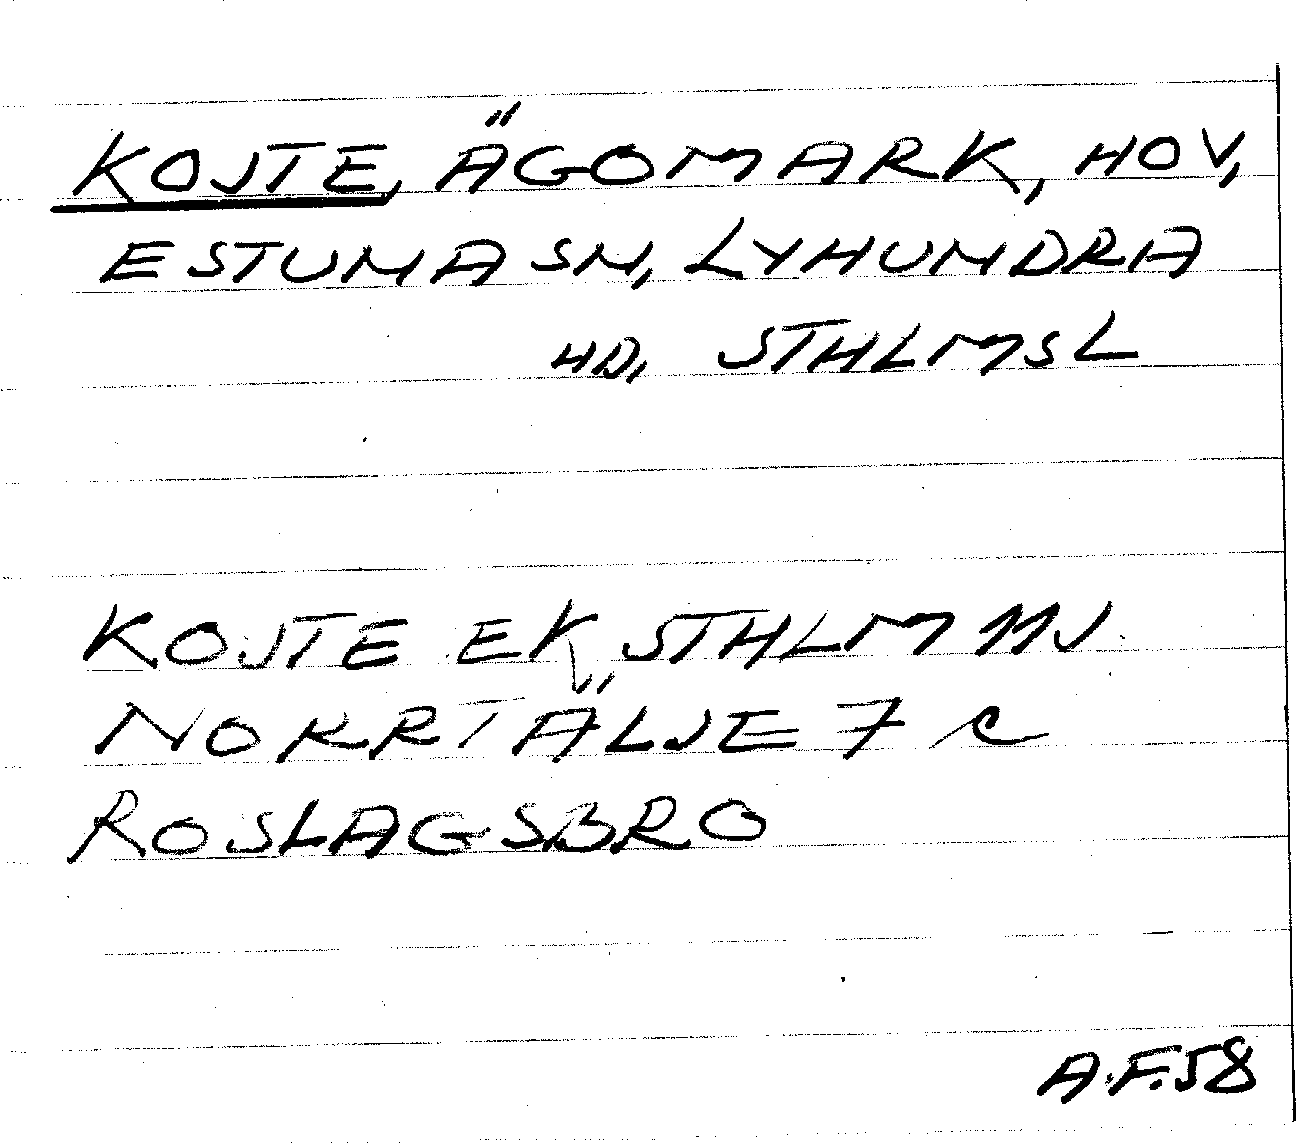 KOJTE, ÄGOMARK, HOV,
ESTUNA SN, LYHUNDRA
HD, STHLMSL
KOJTE EK STHLM 11J
NORRTÄLJE 7 c
ROSLAGSBRO
A.F.58